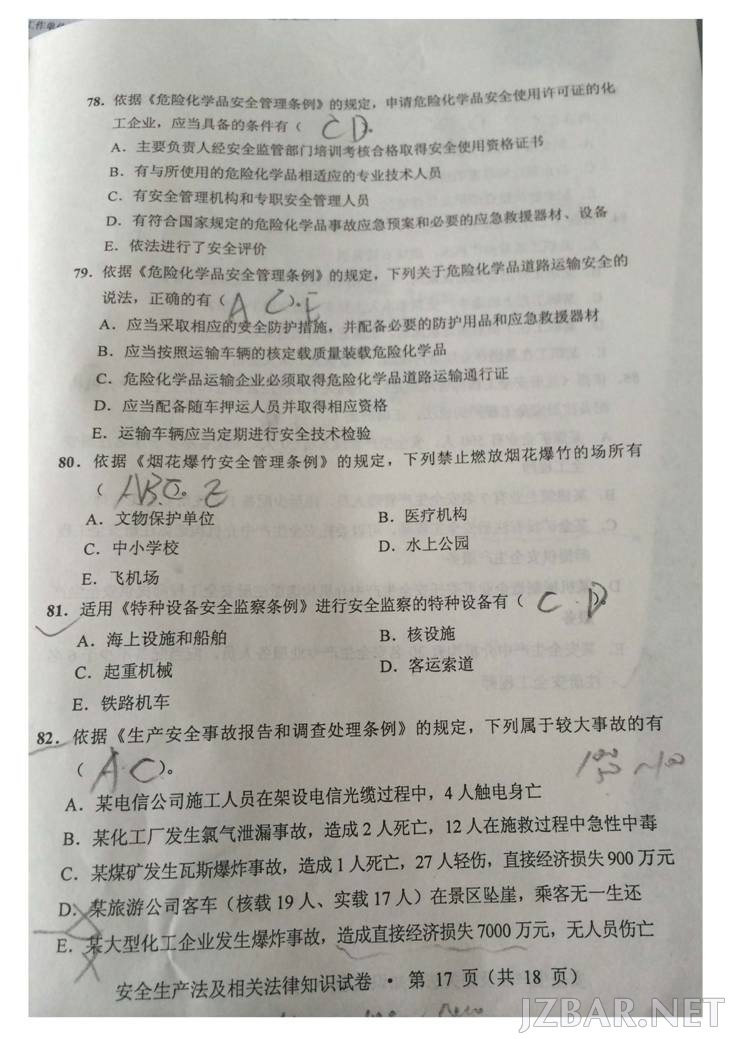 工作单位
78. 依据《危险化学品安全管理条例》的规定，申请危险化学品安全使用许可证的化
工企业，应当具备的条件有（ CD ）。
A．主要负责人经安全监管部门培训考核合格取得安全使用资格证书
B．有与所使用的危险化学品相适应的专业技术人员
C．有安全管理机构和专职安全管理人员
D．有符合国家规定的危险化学品事故应急预案和必要的应急救援器材、设备
E．依法进行了安全评价
79. 依据《危险化学品安全管理条例》的规定，下列关于危险化学品道路运输安全的
说法，正确的有（ A C ）。E
A．应当采取相应的安全防护措施，并配备必要的防护用品和应急救援器材
B．应当按照运输车辆的核定载质量装载危险化学品
C．危险化学品运输企业必须取得危险化学品道路运输通行证
D．应当配备随车押运人员并取得相应资格
E．运输车辆应当定期进行安全技术检验
80. 依据《烟花爆竹安全管理条例》的规定，下列禁止燃放烟花爆竹的场所有
（ ABC ）。E
A．文物保护单位 B．医疗机构
C．中小学校 D．水上公园
E．飞机场
81. 适用《特种设备安全监察条例》进行安全监察的特种设备有（ C D ）。
A．海上设施和船舶 B．核设施
C．起重机械 D．客运索道
E．铁路机车
82. 依据《生产安全事故报告和调查处理条例》的规定，下列属于较大事故的有
（ A C ）。
A．某电信公司施工人员在架设电信光缆过程中，4 人触电身亡
B．某化工厂发生氯气泄漏事故，造成 2 人死亡，12 人在施救过程中急性中毒
C．某煤矿发生瓦斯爆炸事故，造成 1 人死亡，27 人轻伤，直接经济损失 900 万元
D．某旅游公司客车（核载 19 人、实载 17 人）在景区坠崖，乘客无一生还
E．某大型化工企业发生爆炸事故，造成直接经济损失 7000 万元，无人员伤亡
安全生产法及相关法律知识试卷 • 第 17 页（共 18 页）
JZBAR.NET